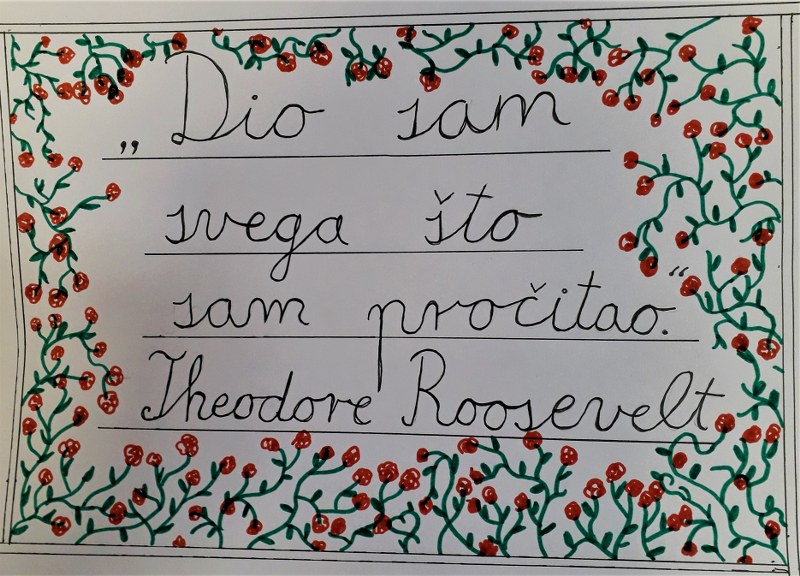 „Dio sam
svega što
sam pročitao.“
Theodore Roosevelt